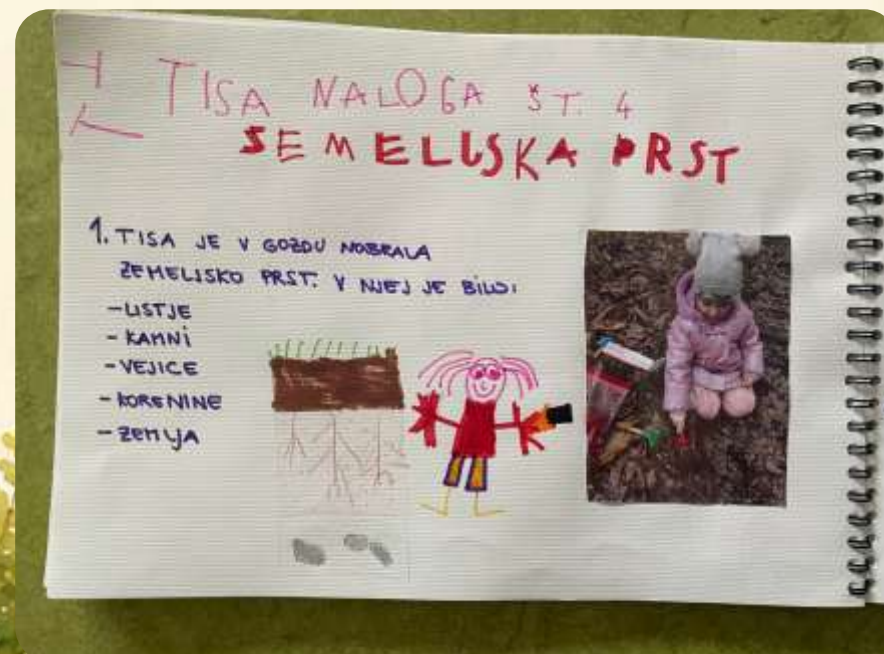 TISA NALOGA ŠT. 4
SEMELJSKA PRST
1. TISA JE V GOZDU NOBRALA
ZEMELJSKO PRST. V NJEJ JE BILO:
- LISTJE
- KAMNi
- VEJICE
- KORENINE
- ZEMLJA